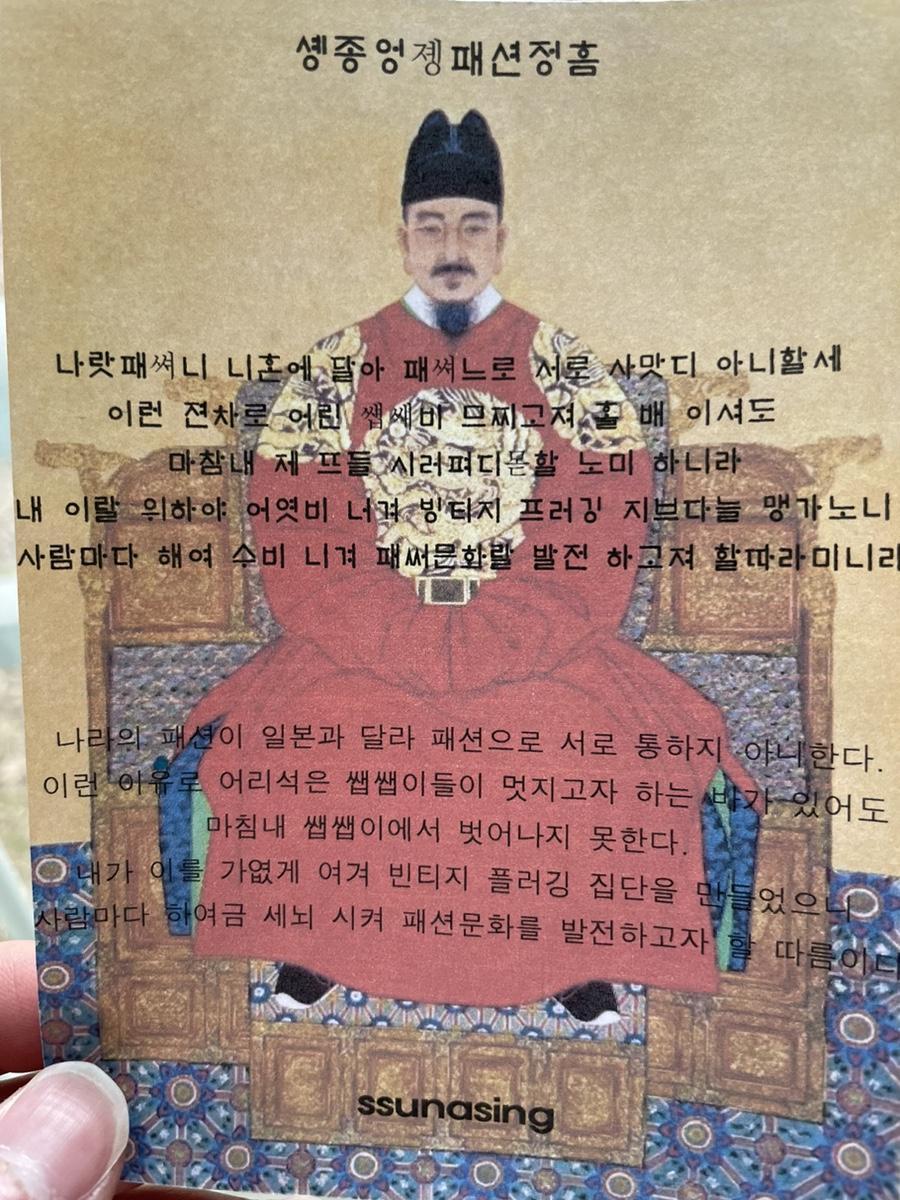 솅종엉젱패션정흠
나랏패쎠니 니혼에 달아 패쎠느로 서로 사맛디 아니할세
이런 젼차로 어린 쌥쌔비 므찌고져 홀 배 이셔도
마참내 제 뜨들 시러펴디몬할 노미 하니라
내 이랄 위하야 어엿비 너겨 빙티지 프러깅 지브다늘 맹가노니
사람마다 해여 수비 니겨 패써문화랄 발전 하고져 활따라미니라
나라의 패션이 일본과 달라 패션으로 서로 통하지 아니한다.
이런 이유로 어리석은 쌥쌥이들이 멋지고자 하는 바가 있어도
마침내 쌥쌥이에서 벗어나지 못한다.
내가 이를 가엾게 여겨 빈티지 플러깅 집단을 만들었으니
사람마다 하여금 세뇌 시켜 패션문화를 발전하고자 할 따름이다
ssunasing